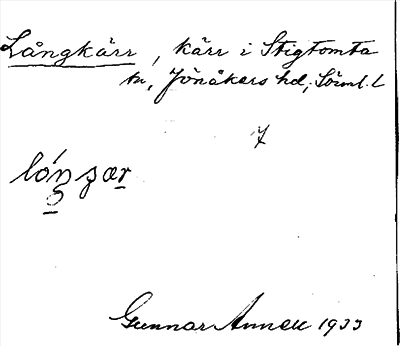 Långkärr, kärr i Stigtomta
sn, Jönåkers hd, Sörml. l
7
Gunnar Annell 1933